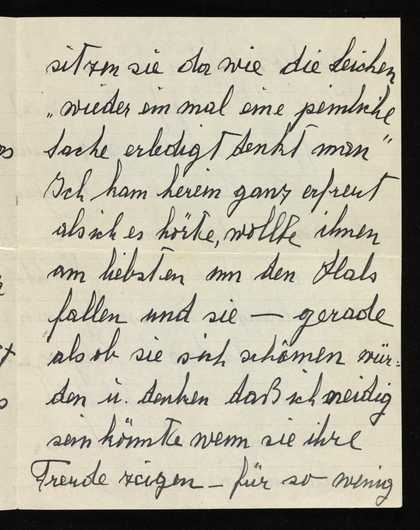 sitzen sie da wie die Leichen
„wieder ein mal eine peinliche
Sache erledigt denkt man"
Ich kam herein ganz erfreut
als ich es hörte, wollte ihnen
am liebsten um den Hals
fallen und sie — gerade
als ob sie sich schämen wür=
den u. denken daß ich neidig
sein könnte wenn sie ihre
Freude zeigen – für so wenig